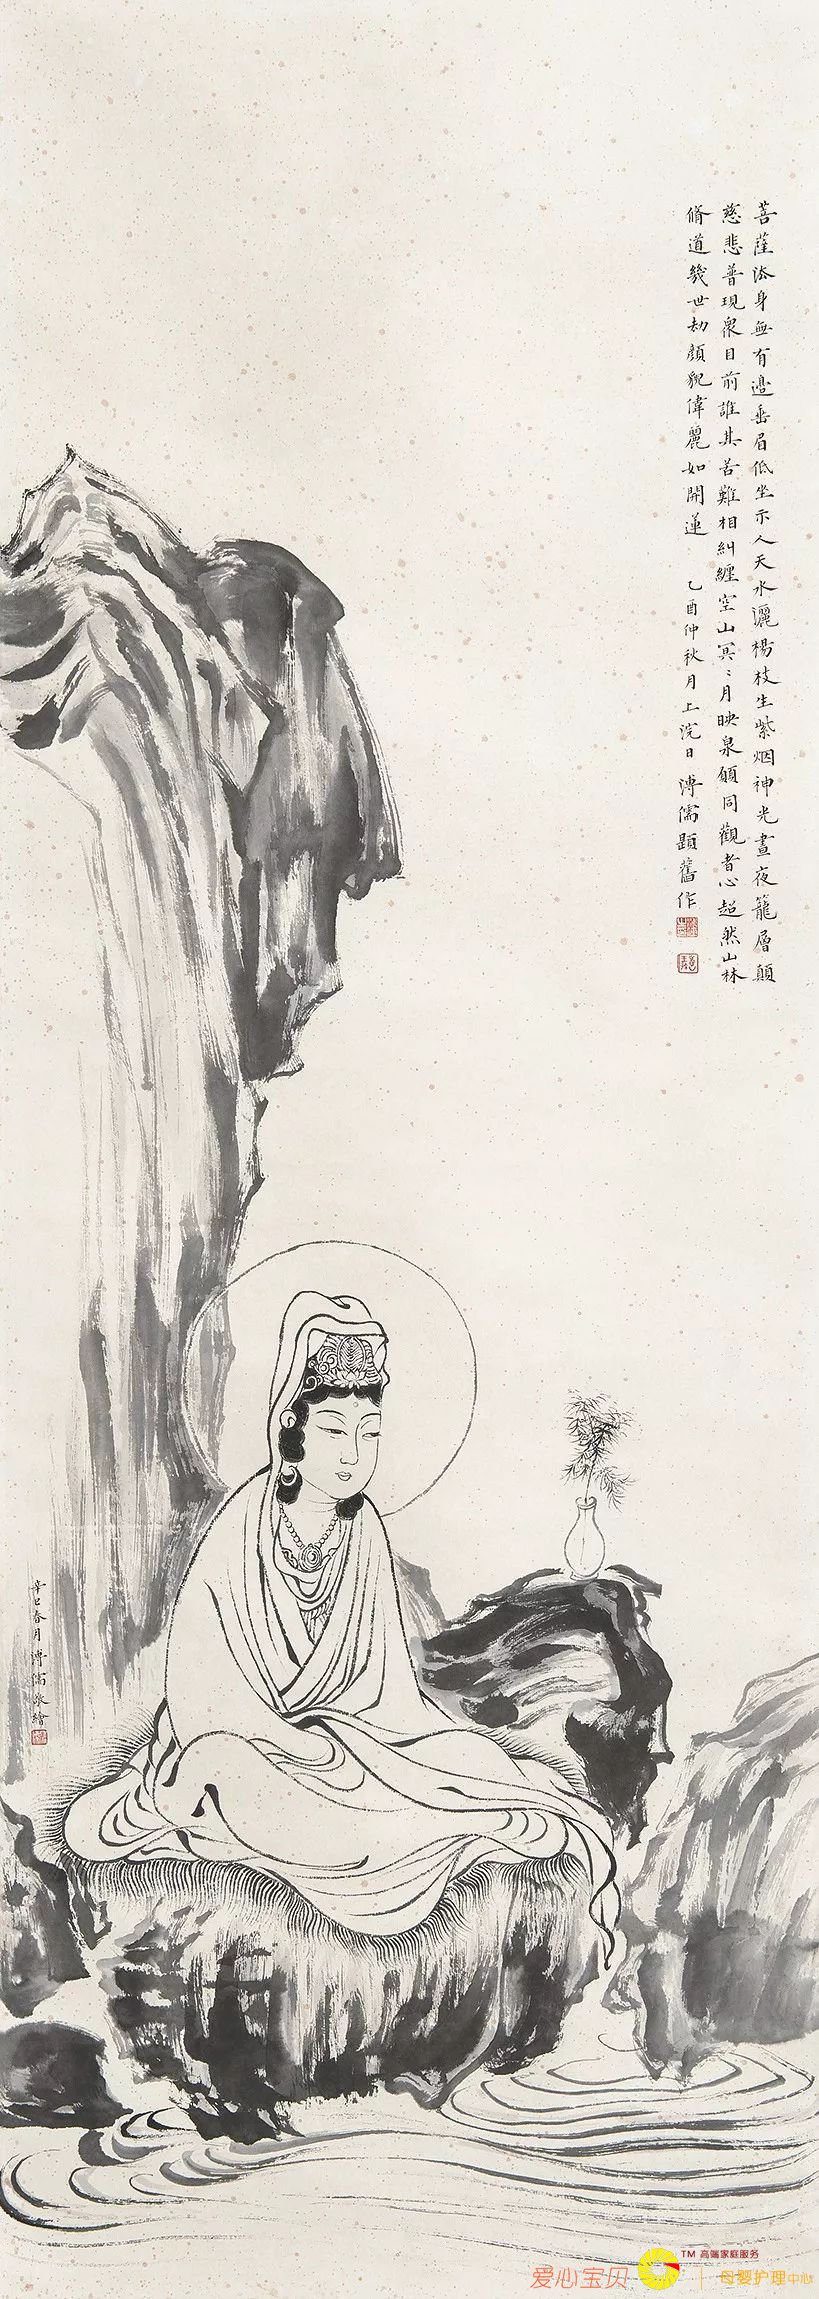 菩薩法身無有邊垂眉低坐示人天水灑楊枝生紫烟神光晝夜籠層顛
慈悲普現衆目前誰其苦難相糾纏空山冥冥月映泉願同觀者心超然山林
脩道幾世劫顏貌偉麗如開蓮 乙酉仲秋月上浣日 溥儒題舊作
辛巳春月溥儒敬繪
TM 高端家庭服务
爱心宝贝
母婴护理中心